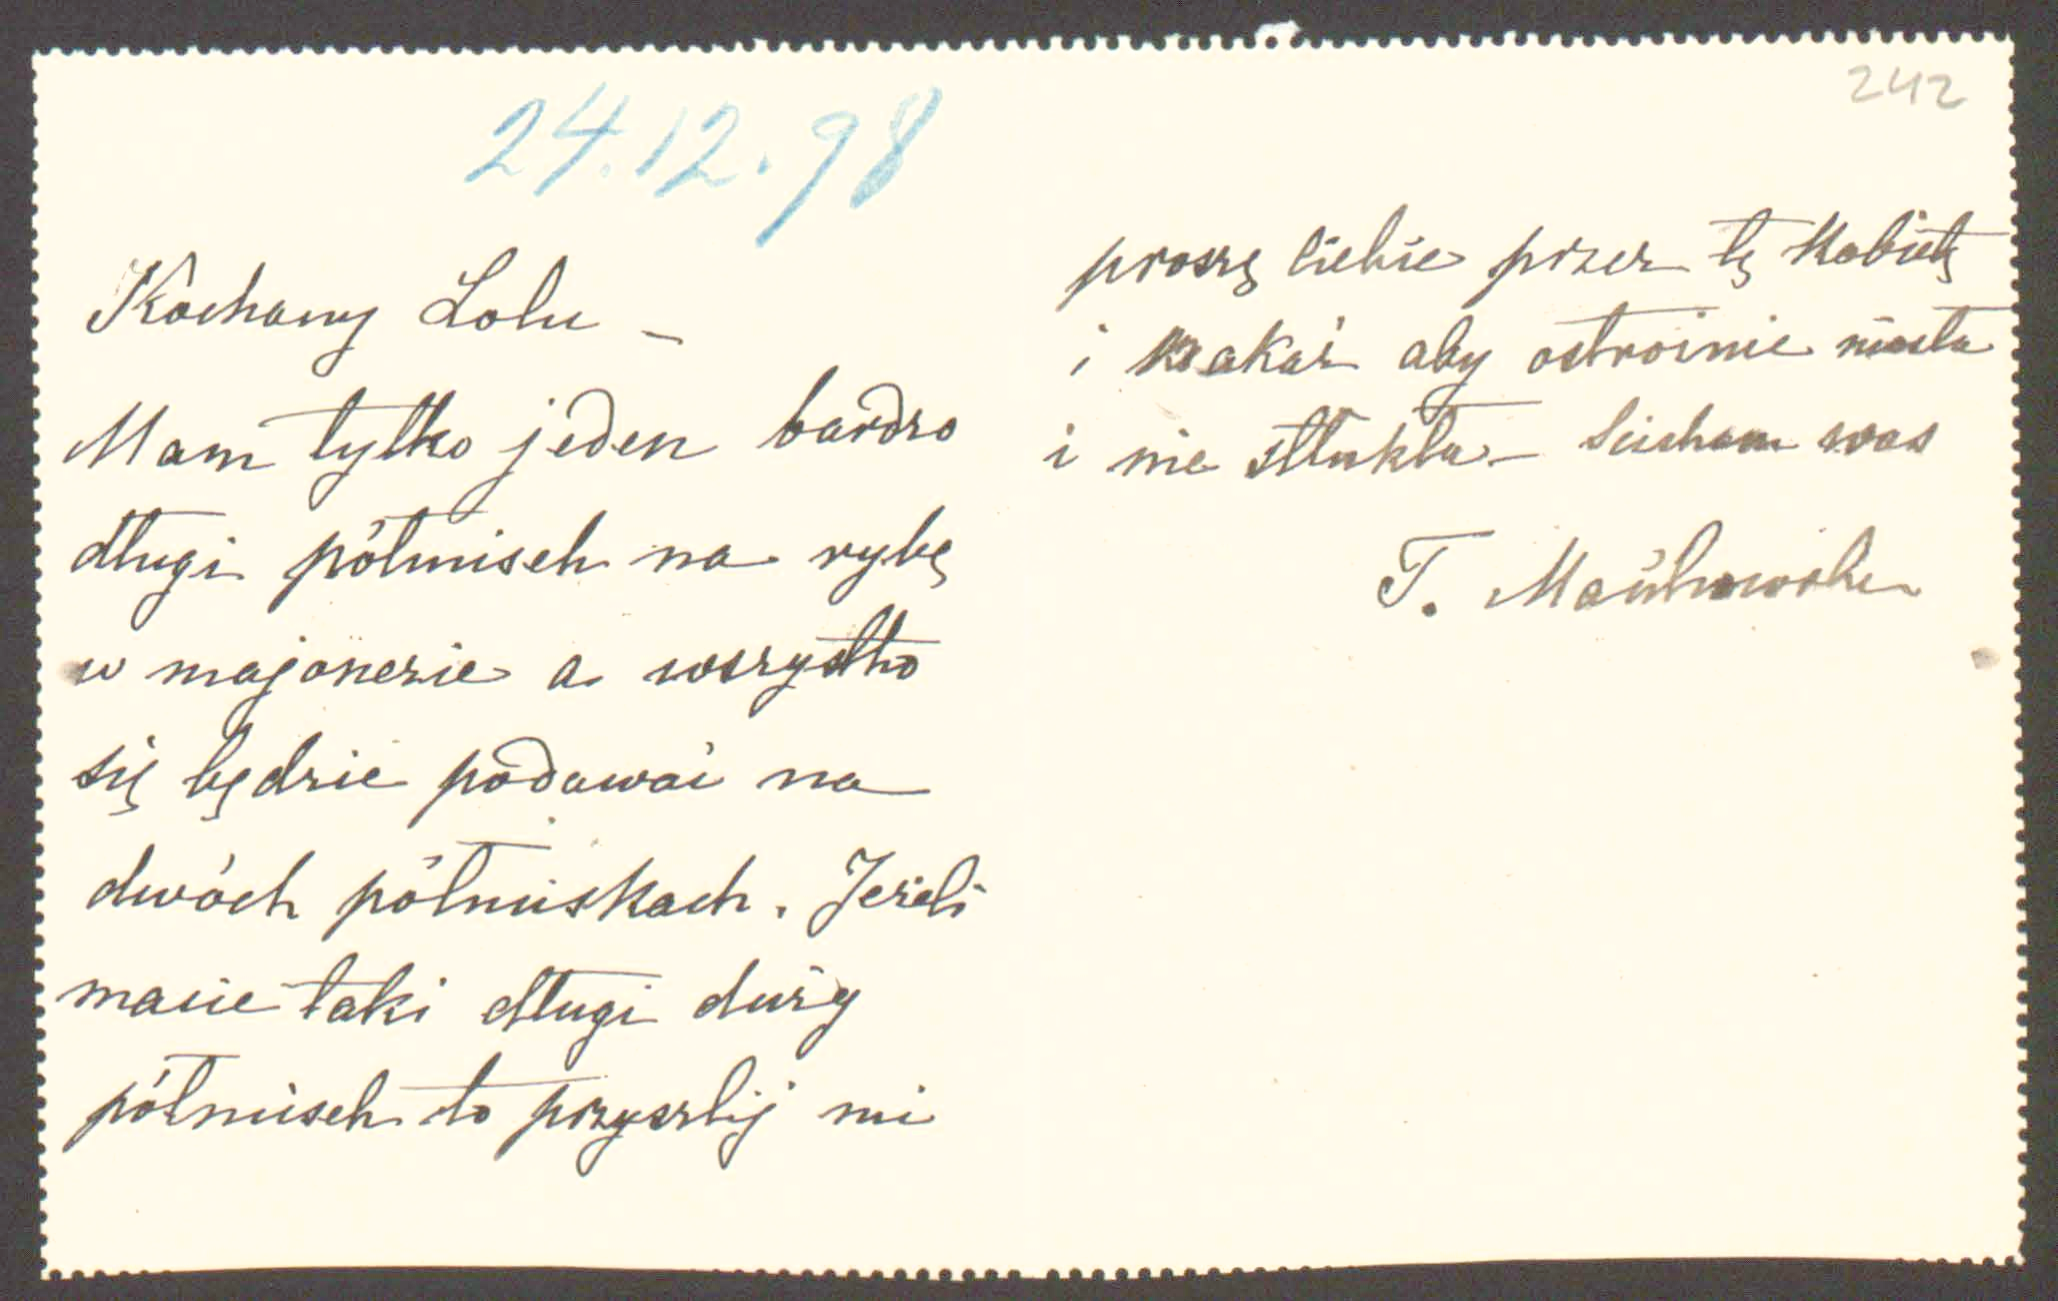 242
24.12.98
Kochany Lolu –
Mam tylko jeden bardzo
długi półmisek na rybę
w majonezie a wszystko
się będzie podawać na
dwóch półmiskach. Jeżeli
macie taki długi duży
półmisek to przyszlij mi
proszę ciebie przez tę kobietę
i każ aby ostrożnie niosła
i nie stłukła – Ściskam was
T.